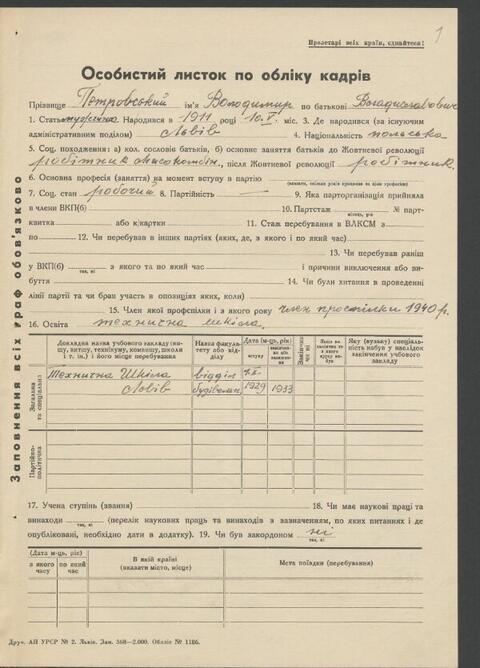 1
Пролетарі всіх країн, єднайтеся!
Особистий листок по обліку кадрів
Прізвище Петровський ім'я Володимир по батькові Владиславович
1. Стать мужчина Народився в 1911 році 10.V. міс. 3. Де народився (за існуючим
адміністративним поділом) Львів 4. Національність польська
5. Соц. походження: а) кол. сословіє батьків, б) основне заняття батьків до Жовтневої революції
робітник, після Жовтневої революції робітник.
6. Основна професія (заняття) на момент вступу в партію
7. Соц. стан робочий 8. Партійність — 9. Яка парторганізація прийняла
в члени ВКП(б) 10. Партстаж № парт-
місяць, рік
квитка або к/картки 11. Стаж перебування в ВЛКСМ з
по 12. Чи перебував в інших партіях (яких, де, з якого і по який час)
13. Чи перебував раніш
у ВКП(б) з якого та по який час і причини виключення або ви-
так, ні
буття 14. Чи були хитання в проведенні
лінії партії та чи брав участь в опозиціях яких, коли)
15. Член якої профспілки і з якого року член проспілки 1940 р.
16. Освіта технична школа.
Заповнення всіх граф обов'язково
Докладна назва учбового закладу (ви-
шу, втишу, технікуму, комвишу, школи
і т. ін.) і його місце перебування
Назва факуль-
тету або від-
ділу
Дата (м-ць, рік)
вступу
Закінчив
чи ні
Яку (вузьку) спеціаль-
ність набув у наслідок
закінчення учбового
закладу
Загальна
та спеціальна
Технична Школа відділ
Львів 1929 1933
Партійно-
політична
17. Учена ступінь (звання) 18. Чи має наукові праці та
винаходи (перелік наукових праць та винаходів з зазначенням, по яких питаннях і де
так, ні
опубліковані, необхідно дати в додатку). 19. Чи був закордоном ні
так, ні
(Дата м-ць, рік)
з якого
часу
по який
час
В якій країні
(вказати місто, місце)
Мета поїздки (перебування)
Друк. АП УРСР № 2. Львів. Зам. 368—2.000. Обліліт № 1186.